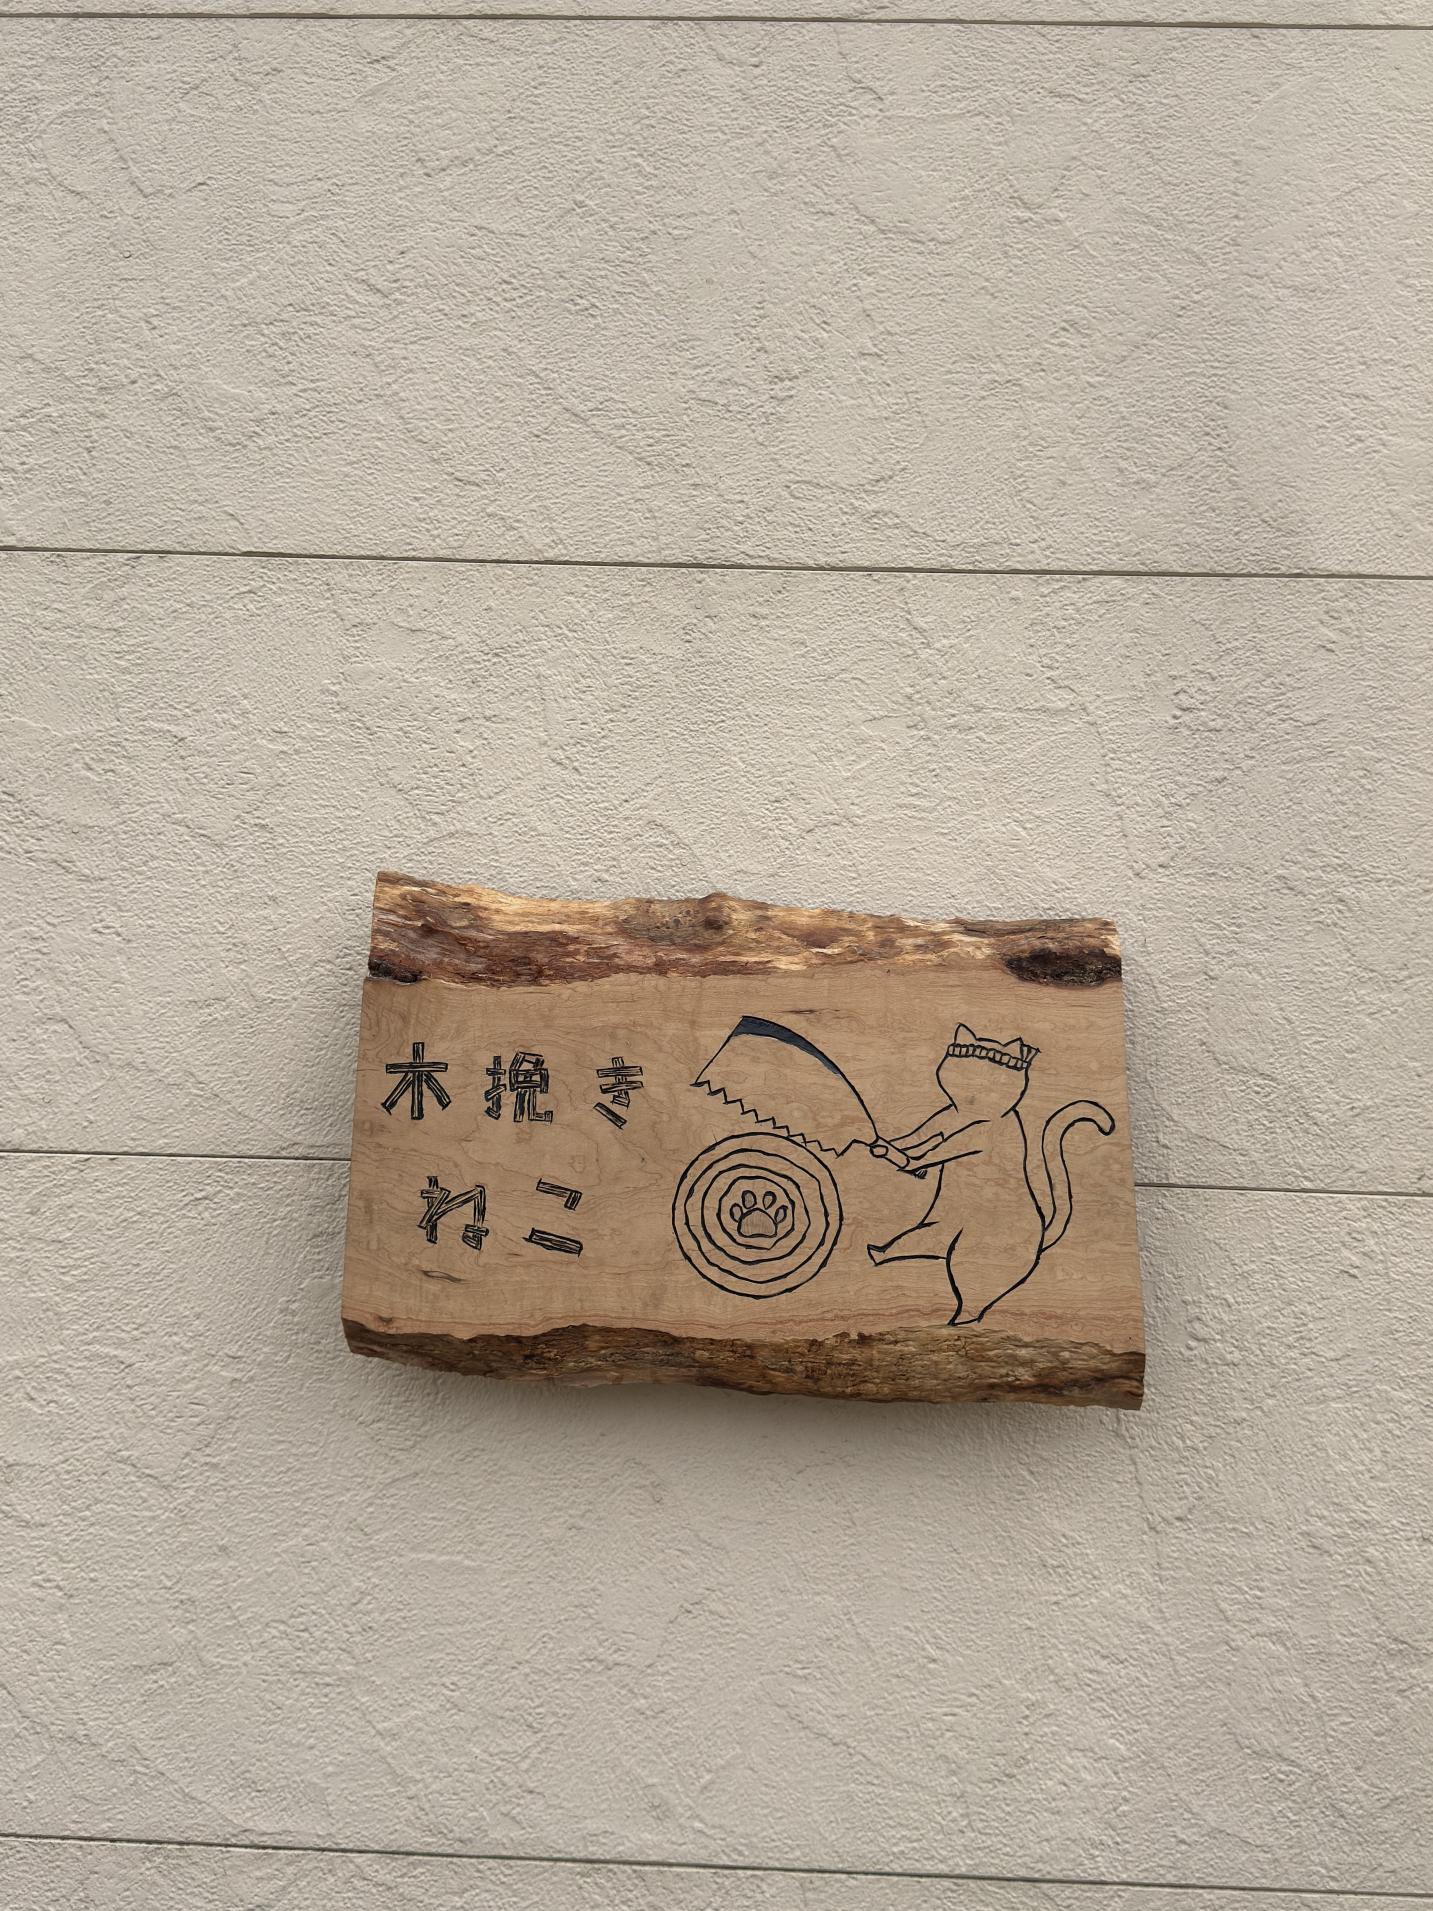 木挽き
ねこ